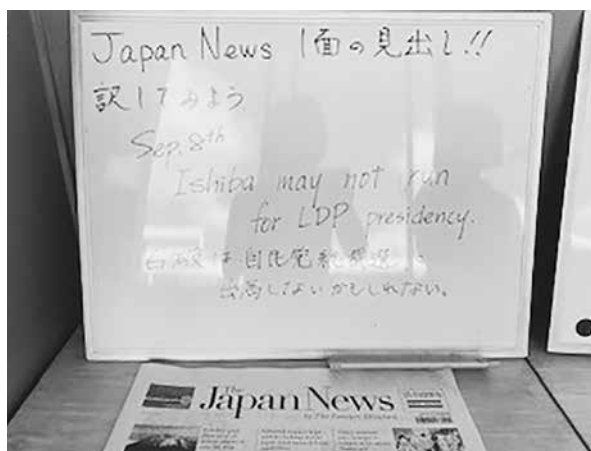 Japan News 1面の見出し!!
訳してみよう
Sep. 8th
Ishiba may not run
for LDP presidency.
石破は自民党総裁選に
出馬しないかもしれない。
The
Japan News
by The Yomiuri Shimbun